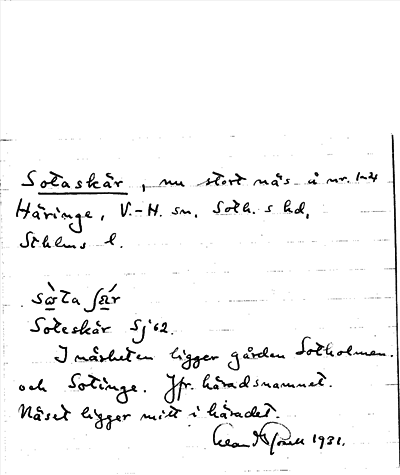 Sotaskär, nu stort näs å nr. 1-24
Häringe, V.-H. sn, Soth. s hd,
Sthlms l.
sɷ̀ta ʃæ̀r
Soteskär Sj 62.
I närheten ligger gården Sotholmen.
och Sotinge. Jfr. häradsnamnet.
Näset ligger mitt i häradet.
1931.